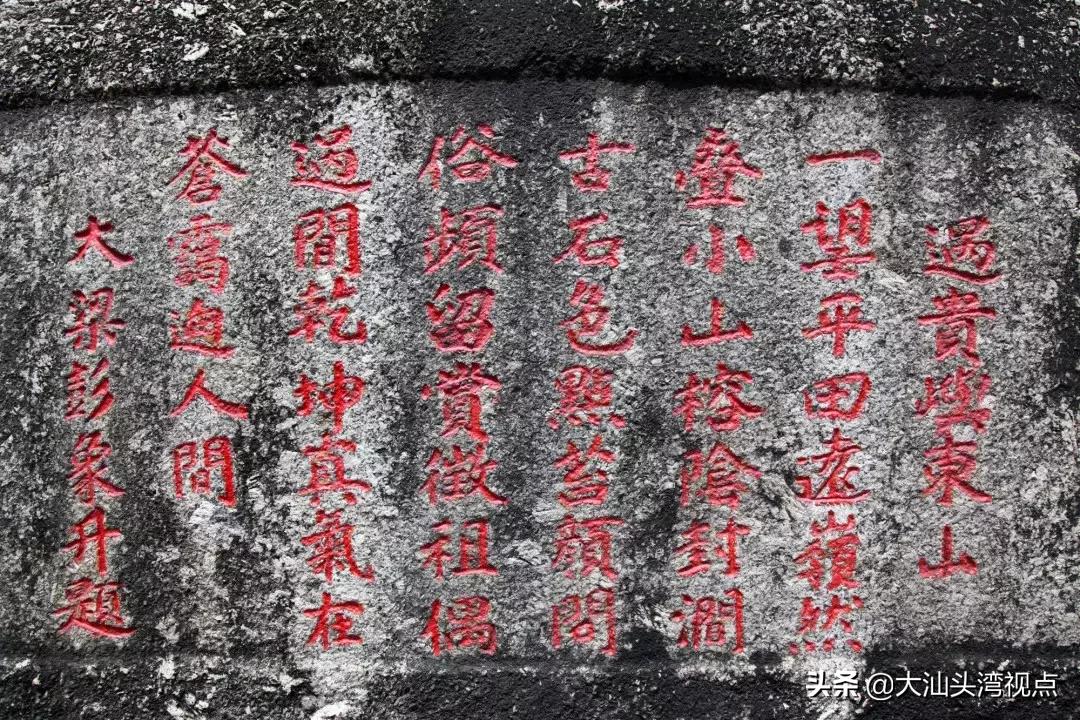 過貴嶼東山
一望平田遠巋然
疊小山榕陰封澗
古石色點苔顏問
俗頻留賞徵租偶
過間乾坤真氣在
蒼靄逈人間
大梁彭象升題
头条 @大汕头湾视点